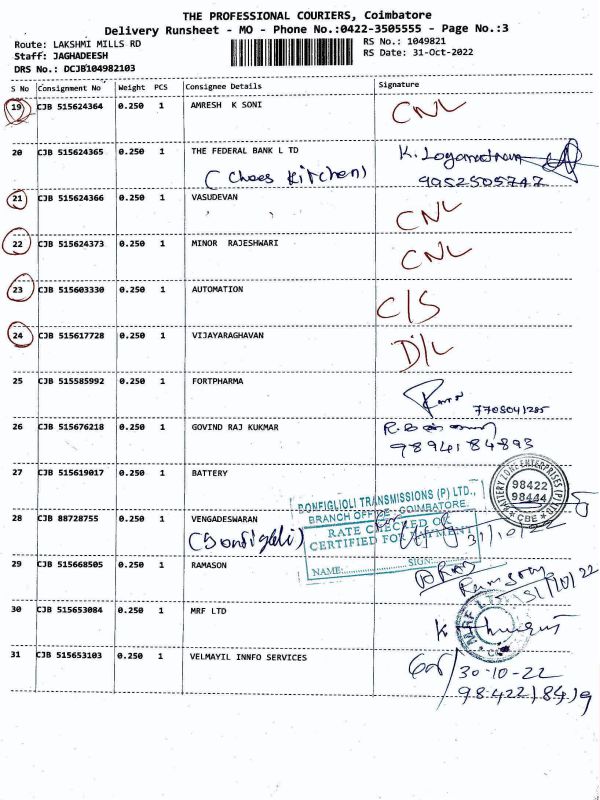 THE PROFESSIONAL COURIERS, Coimbatore
Delivery Runsheet - MO - Phone No.:0422-3505555 - Page No.:3
Route: LAKSHMI MILLS RD RS No.: 1049821
Staff: JAGHADEESH RS Date: 31-Oct-2022
DRS No.: DCJB104982103
S No Consignment No Weight PCS Consignee Details Signature
19 CJB 515624364 0.250 1 AMRESH K SONI CNL
20 CJB 515624365 0.250 1 THE FEDERAL BANK L TD
(Chaes Kitchen) 9952505747
21 CJB 515624366 0.250 1 VASUDEVAN CNL
22 CJB 515624373 0.250 1 MINOR RAJESHWARI CNL
23 CJB 515603330 0.250 1 AUTOMATION C/S
24 CJB 515617728 0.250 1 VIJAYARAGHAVAN D/L
25 CJB 515585992 0.250 1 FORTPHARMA
26 CJB 515676218 0.250 1 GOVIND RAJ KUKMAR
9894184893
27 CJB 515619017 0.250 1 BATTERY
BATTERY ZONE ENTERPRISES (P) LTD
98422
98444
CBE
BONFIGLIOLI TRANSMISSIONS (P) LTD.,
BRANCH OFFICE, COIMBATORE.
28 CJB 88728755 0.250 1 VENGADESWARAN
RATE CHECKED OF
CERTIFIED FOR PAYMENT
(Bonfiglioli) 31/10/22
NAME: SIGN:
29 CJB 515668505 0.250 1 RAMASON
31/10/22
30 CJB 515653084 0.250 1 MRF LTD
MRF
31 CJB 515653103 0.250 1 VELMAYIL INNFO SERVICES
30-10-22